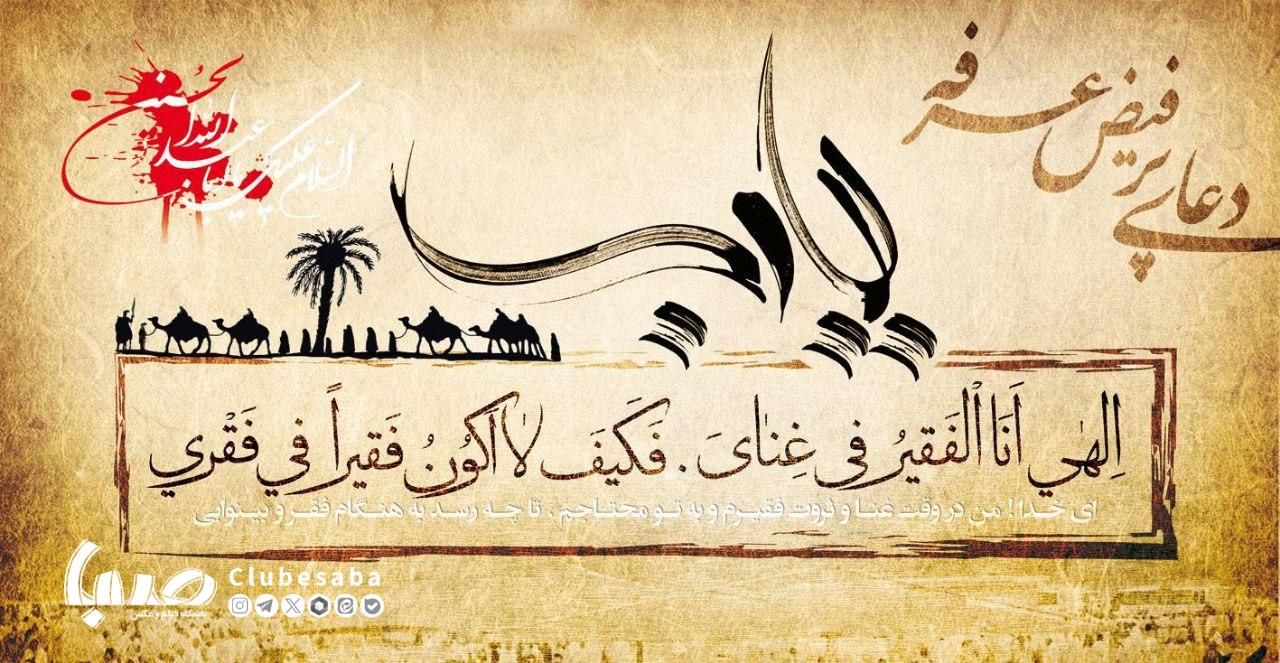 دعای پر فیض عرفه
السلام علیک یا ابا عبدالله الحسین
یارب
اِلهٰي اَنَا الْفَقيرُ في غِنٰایَ . فَكَيفَ لاٰ اَكُونُ فَقيراً في فَقْري
ای خدا! من در وقت غنا و ثروت فقیرم و به تو محتاجم ، تا چه رسد به هنگام فقر و بینوایی
صبا
باشگاه فیلم و عکس
Clubesaba